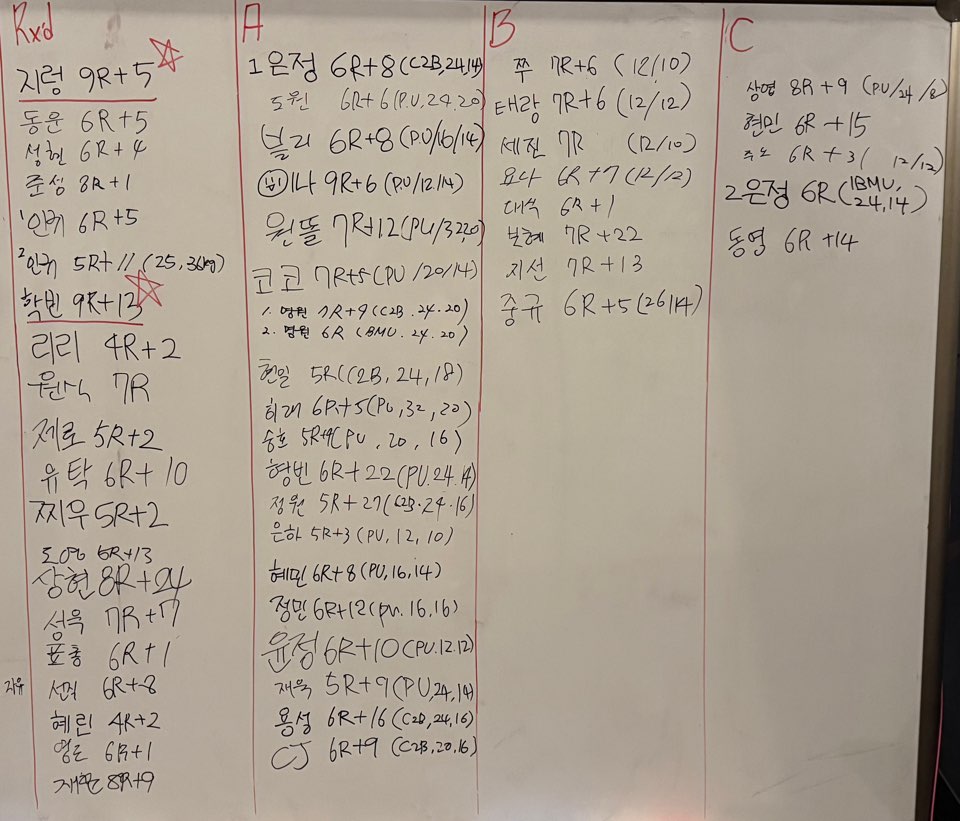 Rx'd
지렁 9R+5
동운 6R+5
성현 6R+4
준성 8R+1
1 인귀 6R+5
2 인귀 5R+11 (25, 36kg)
학빈 9R+13
리리 4R+2
원식 7R
제로 5R+2
유탁 6R+10
찌우 5R+2
도영 6R+13
상현 8R+24
성욱 7R+7
표총 6R+1
지유 6R+8
혜린 4R+2
영근 6R+1
8R+9
A
1 은정 6R+8 (C2B, 24, 14)
5원 6R+6 (P.U, 24. 20)
블리 6R+8 (PU/16/14)
비 미나 9R+6 (P.U/12/14)
원돌 7R+12 (PU/32,20)
코코 7R+5 (PU /20/14)
1. 영원 7R+9 (C2B. 24. 20)
2. 영원 6R (BMU. 24. 20)
현일 5R (C2B, 24, 18)
희래 6R+5 (PU, 32, 20)
승호 5R+9 (PU, 20, 16)
형빈 6R+22 (PU. 24. 14)
정원 5R+27 (C2B. 24. 16)
은하 5R+3 (PU, 12, 10)
혜민 6R+8 (PU, 16, 14)
정민 6R+12 (PU. 16, 16)
윤정 6R+10 (PU. 12. 12)
재욱 5R+9 (PU, 24, 14)
용성 6R+16 (C2B, 24, 16)
CJ 6R+9 (C2B, 20, 16)
B
쭈 7R+6 (12/10)
태랑 7R+6 (12/12)
세진 7R (12/10)
요다 6R+7 (12/12)
대석 6R+1
보혜 7R+22
지선 7R+13
중규 6R+5 (26/14)
C
상영 8R+9 (PU/24/8)
현민 6R+15
주노 6R+3 ( 12/12)
2 은정 6R (BMU, 24, 14)
동영 6R+14